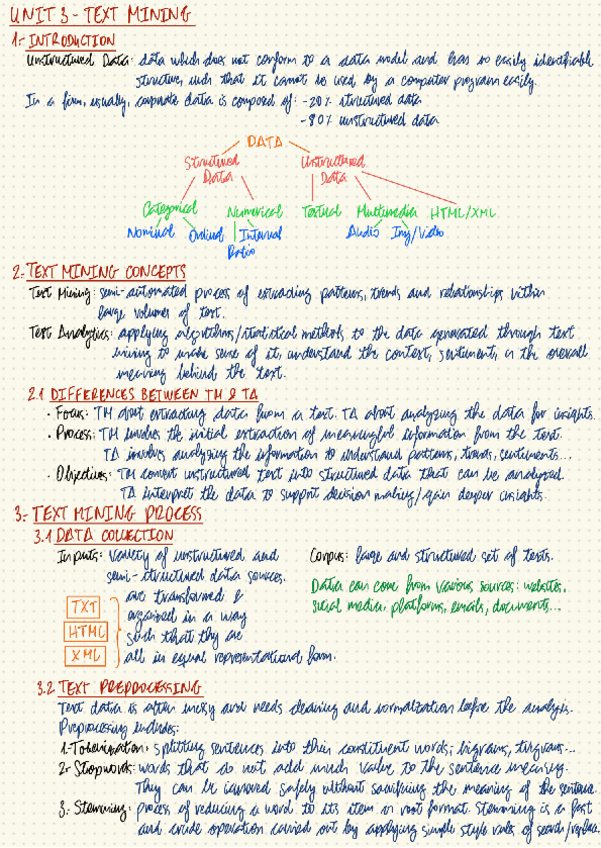 UNIT 3 - TEXT MINING
1.- INTRODUCTION
Unstructured Data: data which does not conform to a data model and has no easily identifiable
structure, such that it cannot be used by a computer program easily.
In a firm, usually, corporate data is composed of: -20% structured data
-80% unstructured data
DATA
Structured Data
Unstructured Data
Categorical Numerical Textual Multimedia HTML/XML
Nominal Ordinal Interval Audio Img/Video
Ratio
2.- TEXT MINING CONCEPTS
Text Mining: semi-automated process of extracting patterns, trends and relationships within
large volumes of text.
Text Analytics: applying algorithms/statistical methods to the data generated through text
mining to make sense of it, understand the context, sentiment, or the overall
meaning behind the text.
2.1 DIFFERENCES BETWEEN TM & TA
· Focus: TM about extracting data from a text. TA about analyzing the data for insights.
· Process: TM involves the initial extraction of meaningful information from the text.
TA involves analysing the information to understand patterns, trends, sentiments...
· Objectives: TM convert unstructured text into structured data that can be analyzed.
TA interpret the data to support decision making/gain deeper insights.
3.- TEXT MINING PROCESS
3.1 DATA COLLECTION
Inputs: variety of unstructured and
semi-structured data sources.
TXT
HTML
XML
are transformed &
organized in a way
such that they are
all in equal representational form.
Corpus: large and structured set of texts.
Data can come from various sources: websites,
social media, platforms, emails, documents...
3.2 TEXT PREPROCESSING
Text data is often messy and needs cleaning and normalization before the analysis.
Preprocessing includes:
1.- Tokenization: splitting sentences into their constituent words; bigrams, trigrams...
2.- Stopwords: words that do not add much value to the sentence meaning.
They can be ignored safely without sacrificing the meaning of the sentence.
3.- Stemming: process of reducing a word to its stem or root format. Stemming is a fast
and crude operation carried out by applying simple style rules of search/replace.